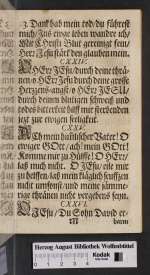 3. Danck hab mein tod/ du führest
mich/ Ins ewge leben wander ich/
Mit Christi Blut gereinigt fein/
Herr Jesu stärck den glauben mein.
CXXIV.
O HErr JEsu/ durch deine thrä-
nen/ O HErr Jesu durch deine grosse
Hertzens-angst/ O HErr JESU/
durch deinen blutigen schweiß und
todes hilff mir sterbenden
jetzt zur ewigen seligkeit.
CXXV.
ACh mein himlischer Vater! O
ewiger GOtt/ ach! mein GOtt!
Komme mir zu Hülffe! O HErr/
laß mich nicht. O JEsu/ eile mir
zu helffen/ laß mein kläglich seufftzen
nicht umsonst/ und meine jämmer-
liche thränen nicht vergebens seyn.
CXXVI.
O JEsu/ Du Sohn David er-
baren
Herzog August Bibliothek Wolfenbüttel
Kodak